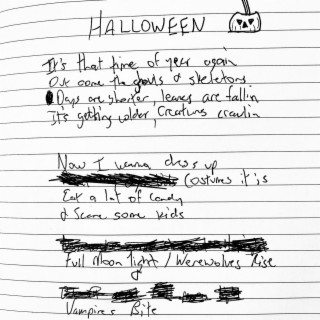 HALLOWEEN
It's that time of year again
Out come the ghouls & skeletons
Days are shorter, leaves are fallin
It's getting colder, Creatures crawlin
Now I wanna dress up
Costumes it is
Eat a lot of candy
& Scare some kids
Full Moon light / Werewolves Rise
Vampires Bite